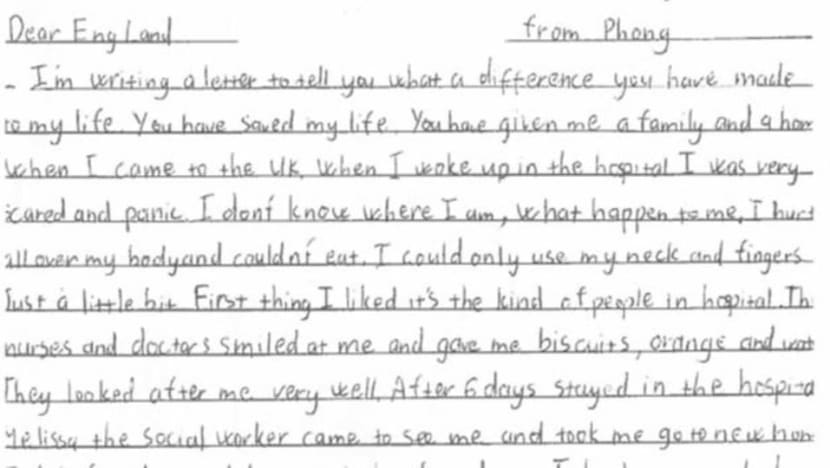 Dear England from Phong
- I'm writing a letter to tell you what a difference you have made
to my life. You have saved my life. You have given me a family and a hom
when I came to the UK. When I woke up in the hospital I was very
scared and panic. I don't know where I am, what happen to me, I hurt
all over my body and couldn't eat. I could only use my neck and fingers
Just a little bit First thing I liked it's the kind of people in hospital. Th
nurses and doctors smiled at me and gave me biscuits, orange and wat
They looked after me very well. After 6 days stayed in the hospita
Melissa the social worker came to see me and took me go to new hom